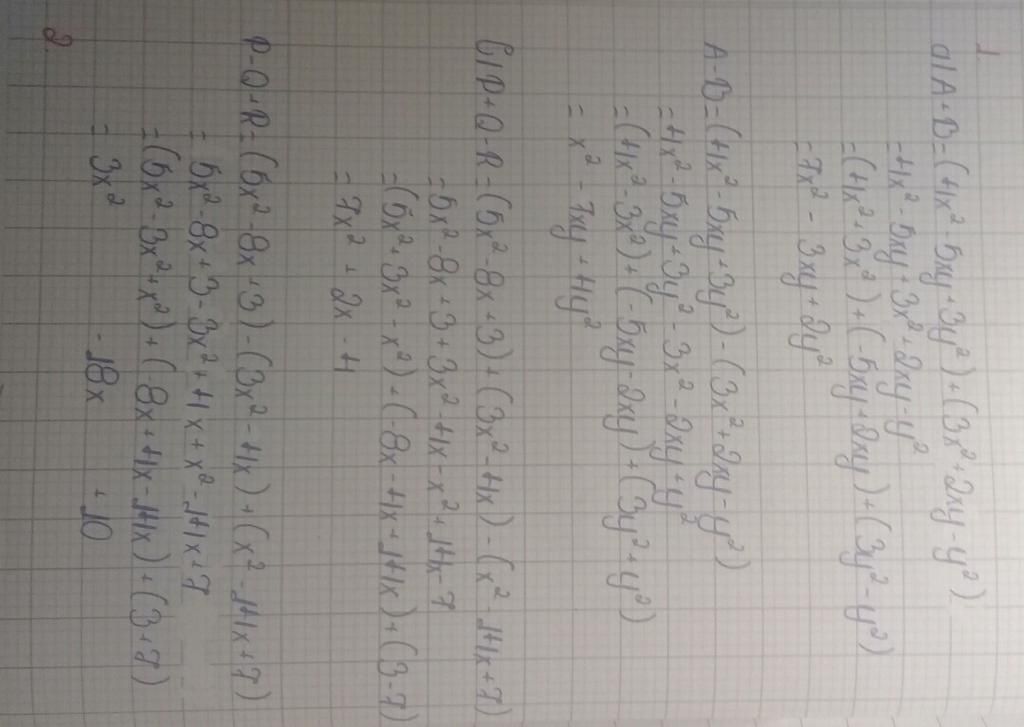 1.
a) A + B = (4x² - 5xy + 3y²) + (3x² + 2xy - y²)
= 4x² - 5xy + 3x² + 2xy - y²
= (4x² + 3x²) + (-5xy + 2xy) + (3y² - y²)
= 7x² - 3xy + 2y²
A - B = (4x² - 5xy + 3y²) - (3x² + 2xy - y²)
= 4x² - 5xy + 3y² - 3x² - 2xy + y²
= (4x² - 3x²) + (-5xy - 2xy) + (3y² + y²)
= x² - 7xy + 4y²
b) P + Q - R = (5x² - 8x + 3) + (3x² - 4x) - (x² - 14x + 7)
= 5x² - 8x + 3 + 3x² - 4x - x² + 14x - 7
= (5x² + 3x² - x²) + (-8x - 4x + 14x) + (3 - 7)
= 7x² + 2x - 4
P - Q + R = (5x² - 8x + 3) - (3x² - 4x) + (x² - 14x + 7)
= 5x² - 8x + 3 - 3x² + 4x + x² - 14x + 7
= (5x² - 3x² + x²) + (-8x + 4x - 14x) + (3 + 7)
= 3x² - 18x + 10
2.